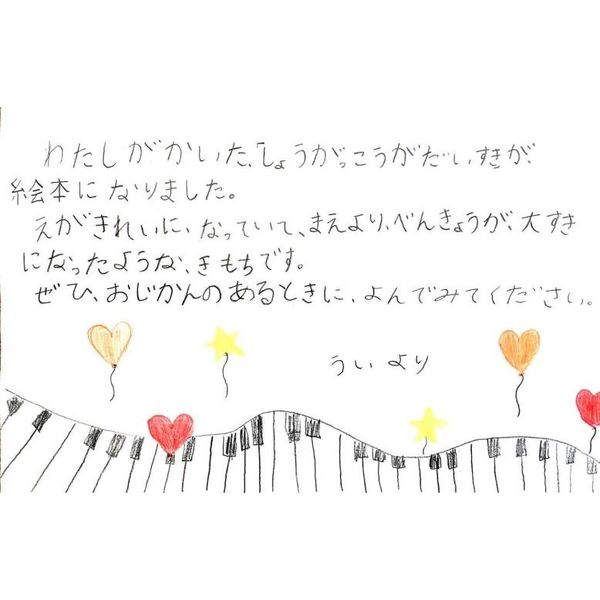 わたしがかいた、「しょうがっこうがだいすき」が、
絵本になりました。
えがきれいに、なっていて、まえより、べんきょうが、大すき
になったような、きもちです。
ぜひ、おじかんのあるときに、よんでみてください。
ういより